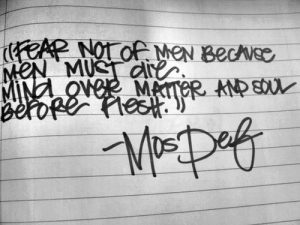 "FEAR NOT OF MEN BECAUSE
MEN MUST die.
MIND OVER MATTER AND SOUL
BEFORE FlESH."
-Mos Def